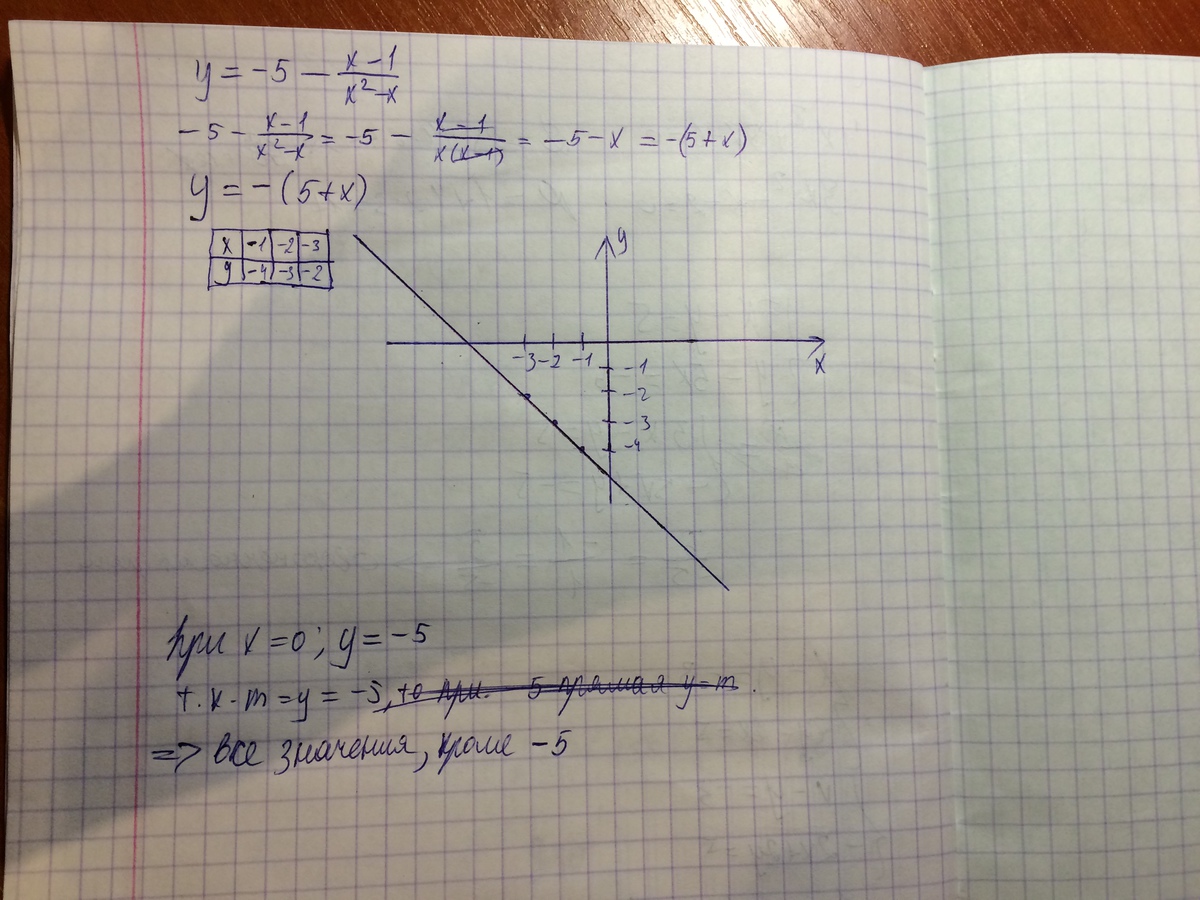 y = -5 - \frac{x-1}{x^2-x}
-5 - \frac{x-1}{x^2-x} = -5 - \frac{x-1}{x(x-1)} = -5-x = -(5+x)
y = -(5+x)
x -1 -2 -3
y -4 -3 -2
y
-3 -2 -1
x
-1
-2
-3
-4
при x=0; y=-5
т. к. m=y=-5, то при 5 прямая y=m
=> все значения, кроме -5